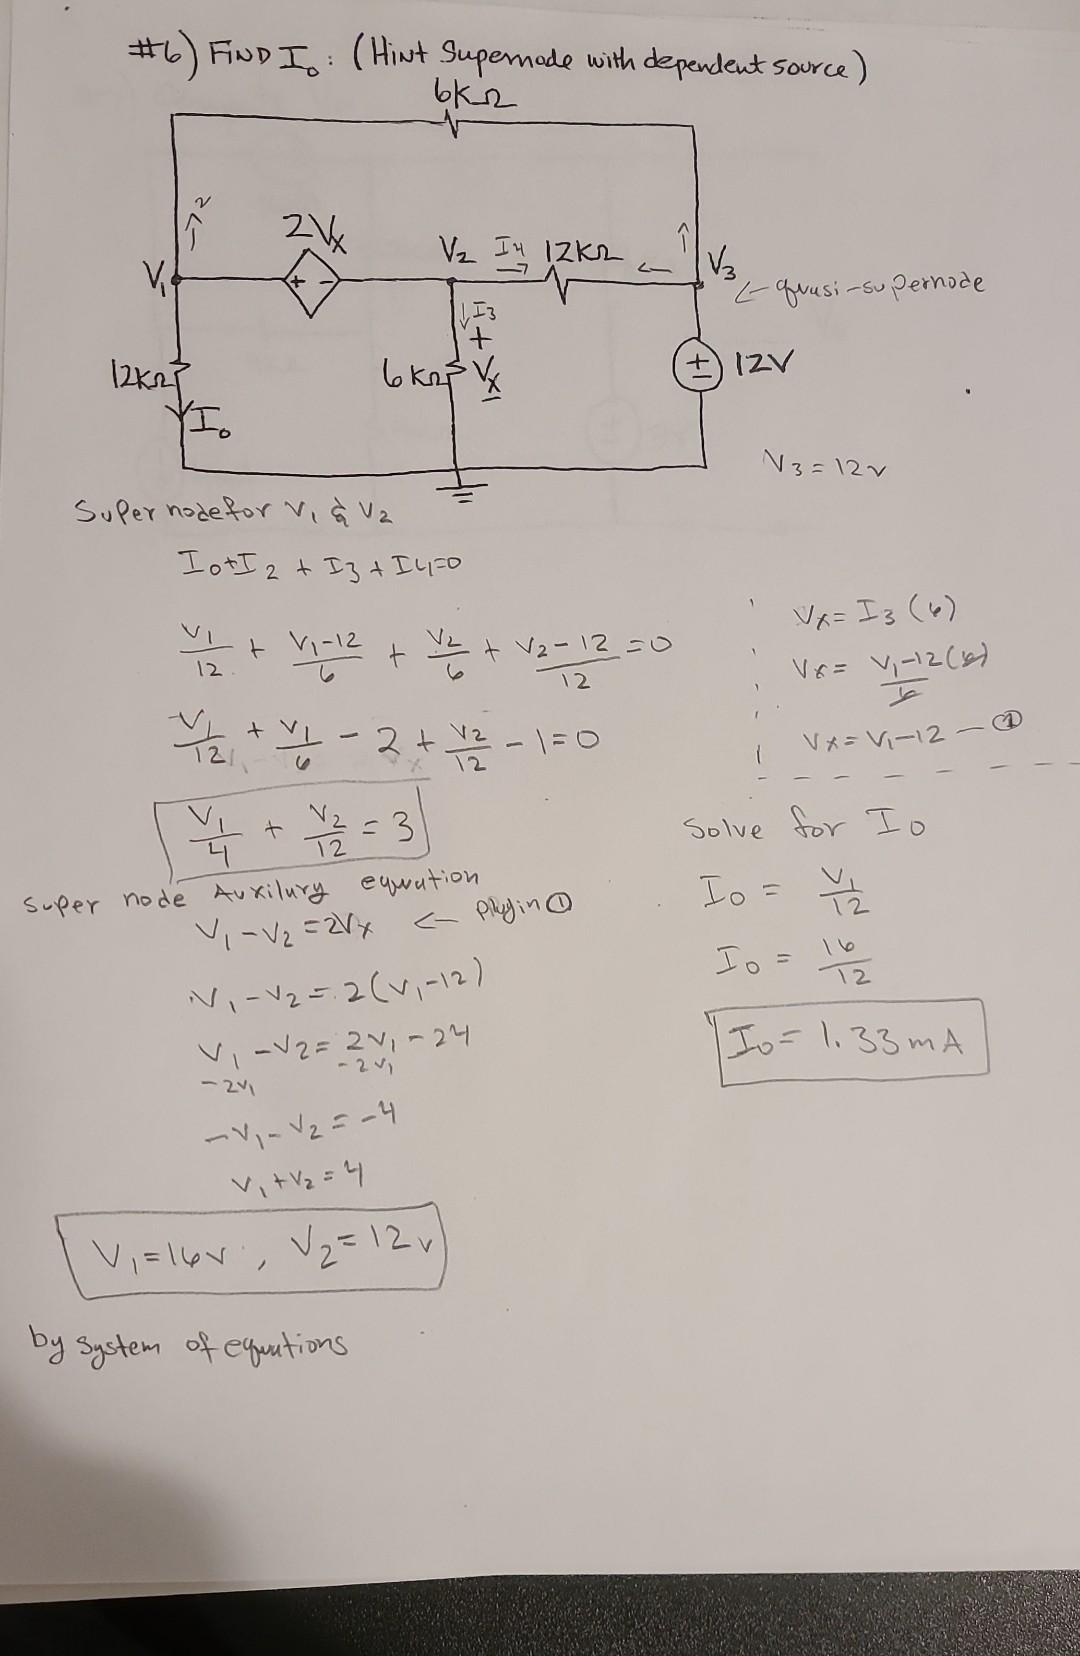 #6) FIND I₀: (Hint Supernode with dependent source)
6KΩ
2
2Vx
V₂ I4 12KΩ
V₁
+ -
V₃
← quasi-supernode
↓I3
+
12KΩ
6KΩ Vx
-
± 12V
I₀
V3 = 12v
Super node for V₁ & V₂
I0+I2 + I3 + I4=0
V1/12 + V₁-12/6 + V2/6 + V2-12/12 = 0
V1/12 + V1/6 - 2 + V2/12 - 1 = 0
V1/4 + V2/12 = 3
Vx = I3 (6)
Vx = V₁-12/6 (6)
Vx = V₁-12 — ①
super node Auxilury equation
V₁ - V₂ = 2Vx ← plugin ①
V₁ - V2 = 2(V₁-12)
V₁ - V2 = 2V₁ - 24
-2V₁ -2V₁
-V₁ - V2 = -4
V₁ + V2 = 4
V₁ = 16v , V2 = 12v
by system of equations
Solve for I0
I0 = V₁/12
I0 = 16/12
I0 = 1.33mA